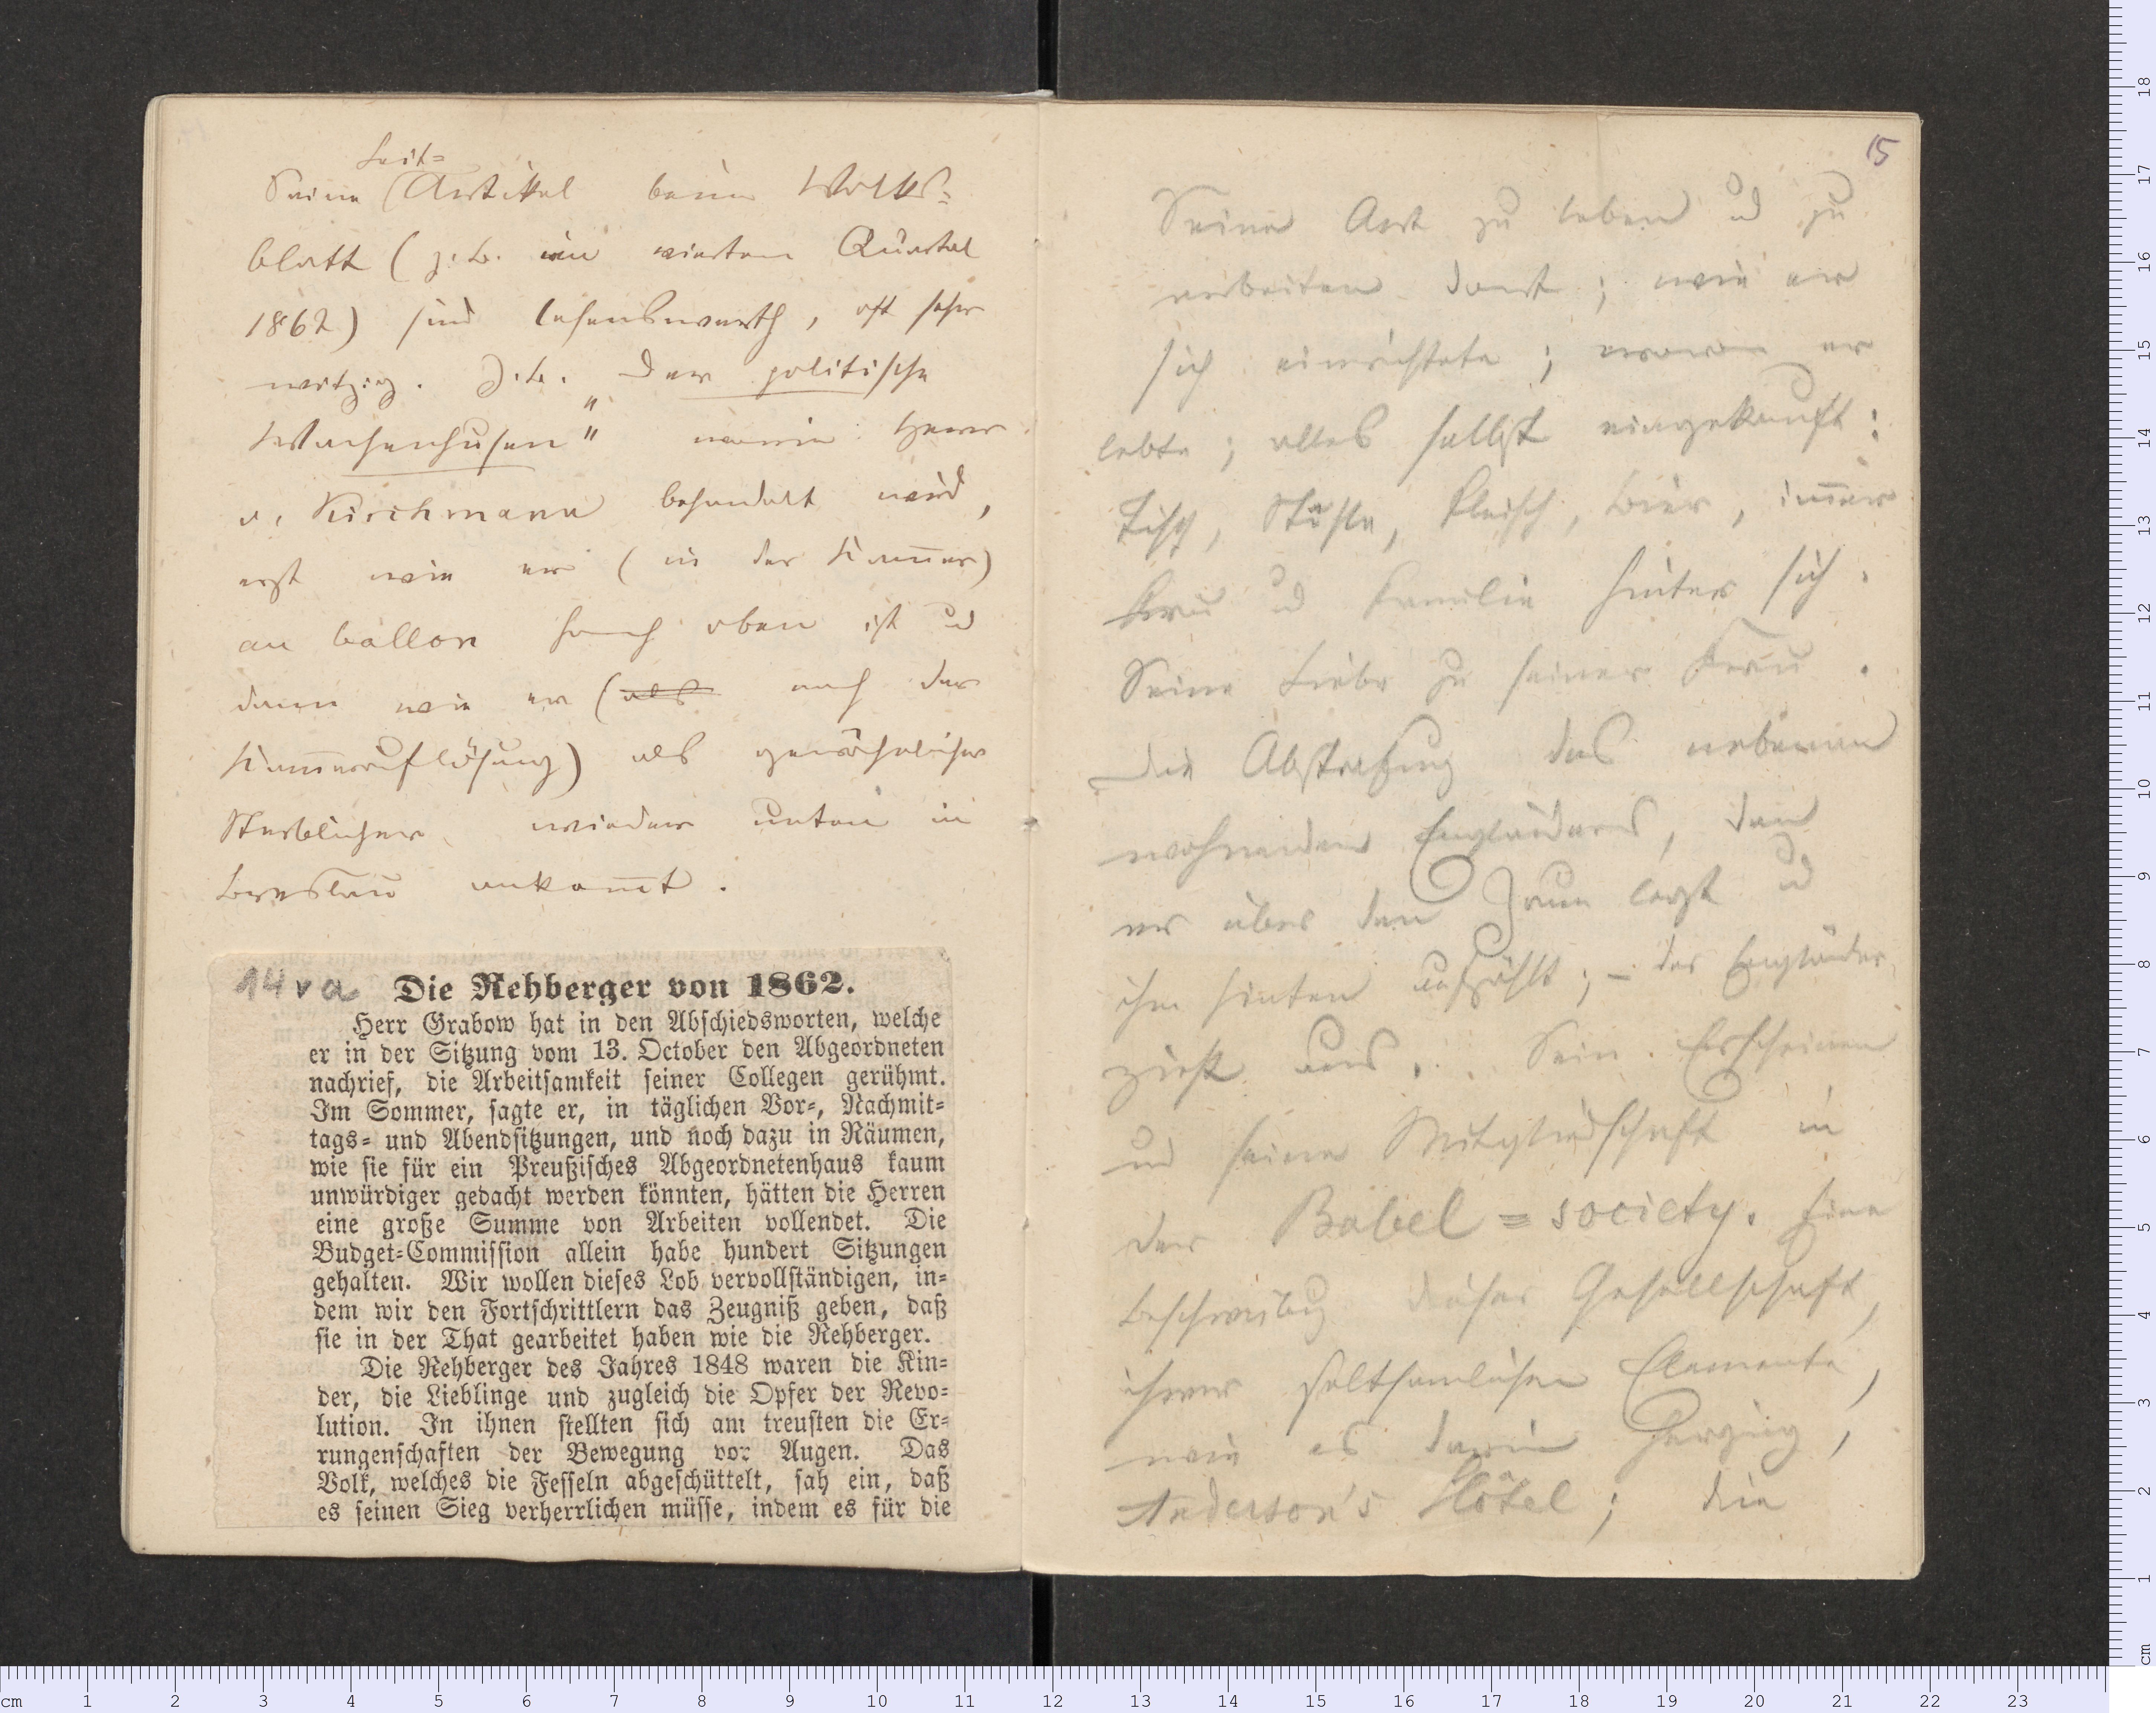 Leit=
Seine Artikel beim Volks=
blatt (z. B. im vierten Quartal
1862) sind lesenswerth, oft sehr
witzig. Z. B. „Der politische
Wachenhusen" worin Herr
v. Kirchmann behandelt wird,
erst wie er (in der Kam̄er)
en ballon hoch oben ist ud
dann wie er (als nach der
Kam̄erauflösung) als gewöhnlicher
Sterblicher wieder unten in
Breslau ankom̄t.
14va
Die Rehberger von 1862.
Herr Grabow hat in den Abschiedsworten, welche
er in der Sitzung vom 13. October den Abgeordneten
nachrief, die Arbeitsamkeit seiner Collegen gerühmt.
Im Sommer, sagte er, in täglichen Vor-, Nachmit-
tags- und Abendsitzungen, und noch dazu in Räumen,
wie sie für ein Preußisches Abgeordnetenhaus kaum
unwürdiger gedacht werden könnten, hätten die Herren
eine große Summe von Arbeiten vollendet. Die
Budget-Commission allein habe hundert Sitzungen
gehalten. Wir wollen dieses Lob vervollständigen, in-
dem wir den Fortschrittlern das Zeugniß geben, daß
sie in der That gearbeitet haben wie die Rehberger.
Die Rehberger des Jahres 1848 waren die Kin-
der, die Lieblinge und zugleich die Opfer der Revo-
lution. In ihnen stellten sich am treusten die Er-
rungenschaften der Bewegung vor Augen. Das
Volk, welches die Fesseln abgeschüttelt, sah ein, daß
es seinen Sieg verherrlichen müsse, indem es für die
15
Seine Art zu leben ud zu
arbeiten dort; wie er
sich einrichtete; wovon er
lebte; alles selbst eingekauft:
Tisch, Stühle, Fleisch, Bier, im̄er
Frau ud Familie hinter sich.
Seine Liebe zu seiner Frau.
Die Abstrafung des nebenan
wohnenden Engländers, den
er über den Zaun legt ud
ihm hinten aufzählt; – der Engländer
zieht aus. Sein Erscheinen
und seine Mitgliedschaft in
der Babel=society. Eine
Beschreibung dieser Gesellschaft,
ihrer seltsamlichen Elemente,
wie es darin herging,
Anderson's Hôtel; die